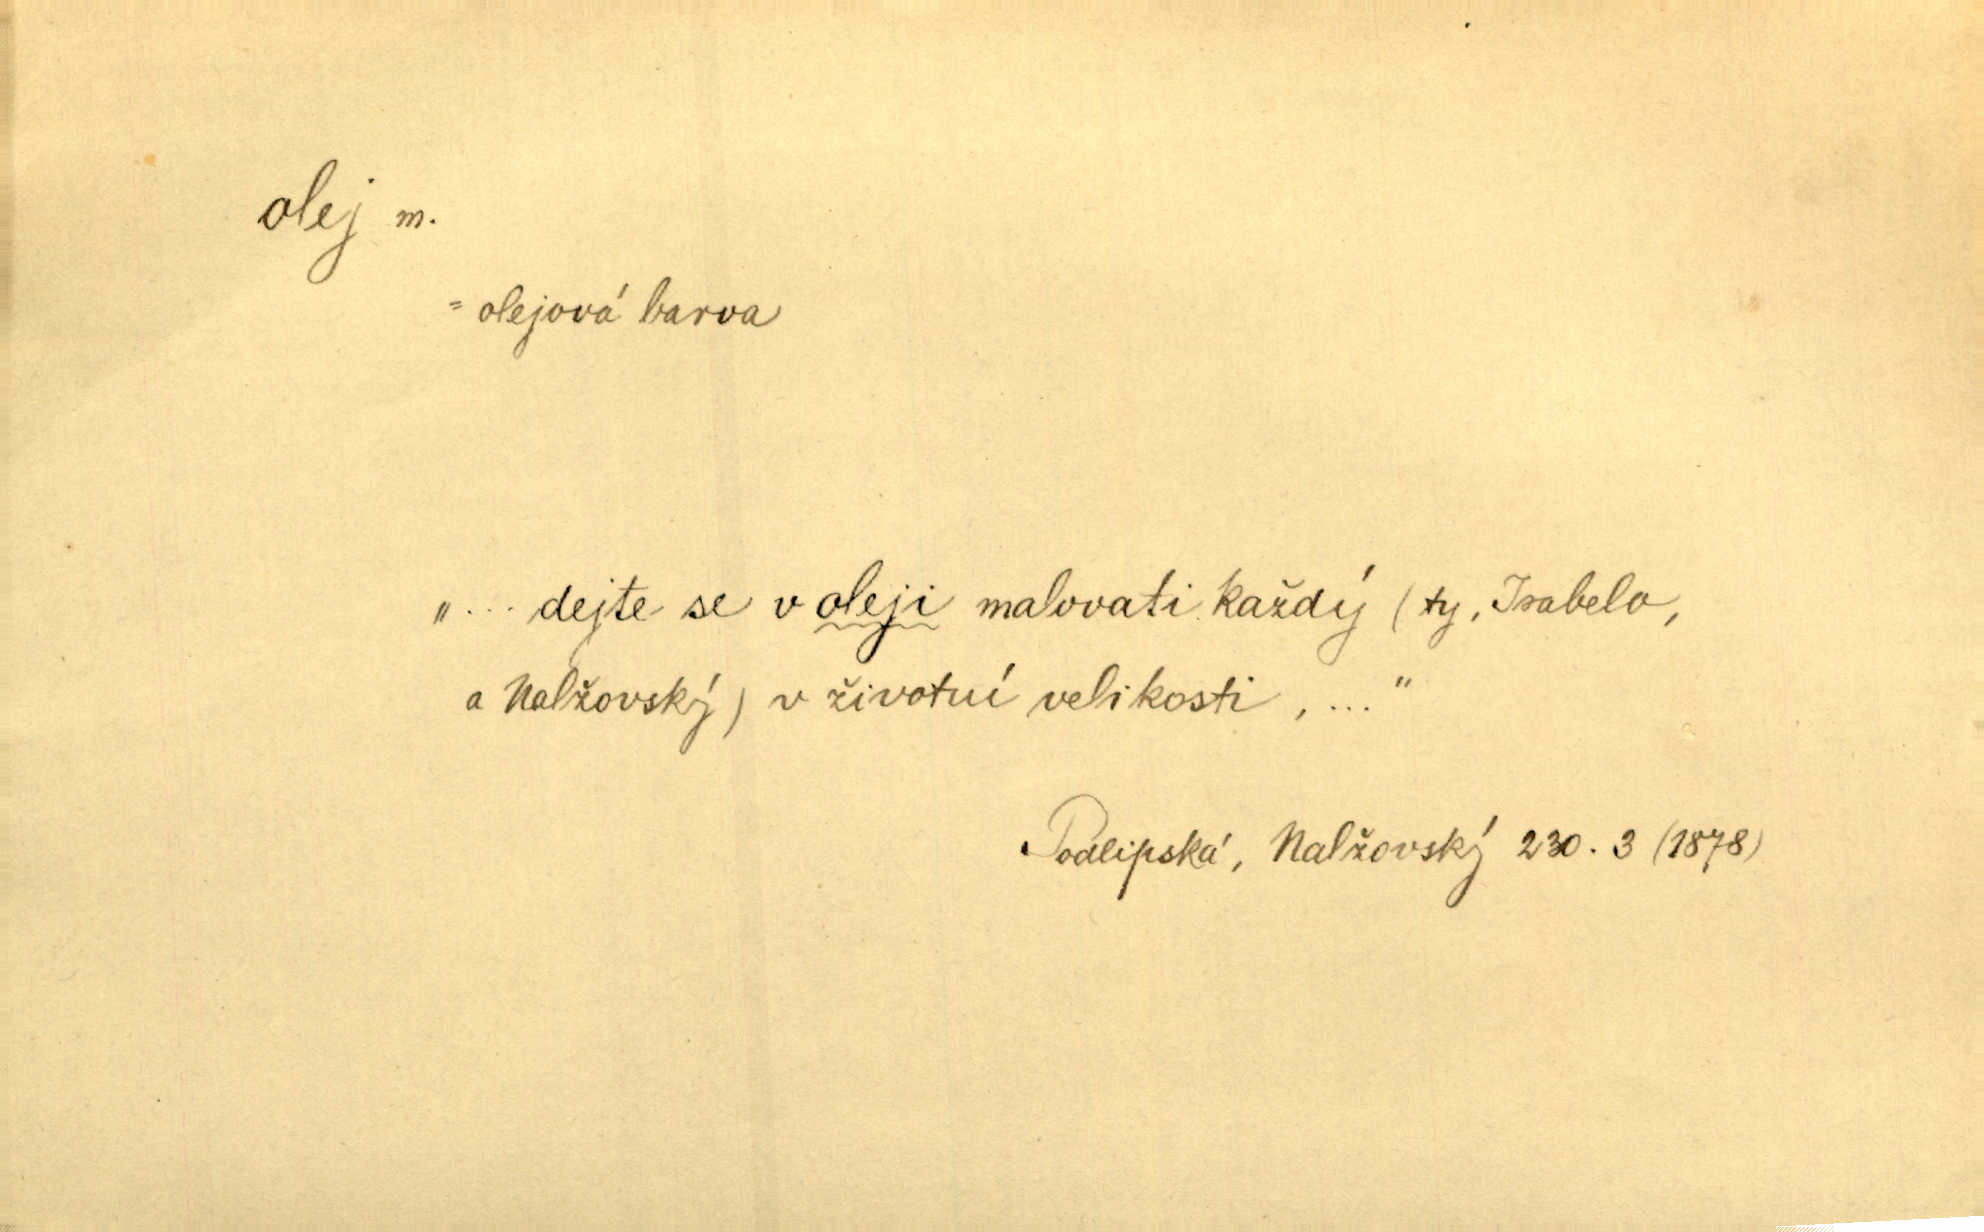 olej m.
= olejová barva
„... dejte se v oleji malovati každý (ty, Isabelo,
a Nalžovský) v životní velikosti, ..."
Podlipská, Nalžovský 230.3 (1878)